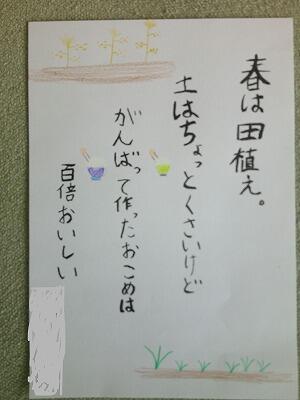 春は田植え。
土はちょっとくさいけど
がんばって作ったおこめは
百倍おいしい